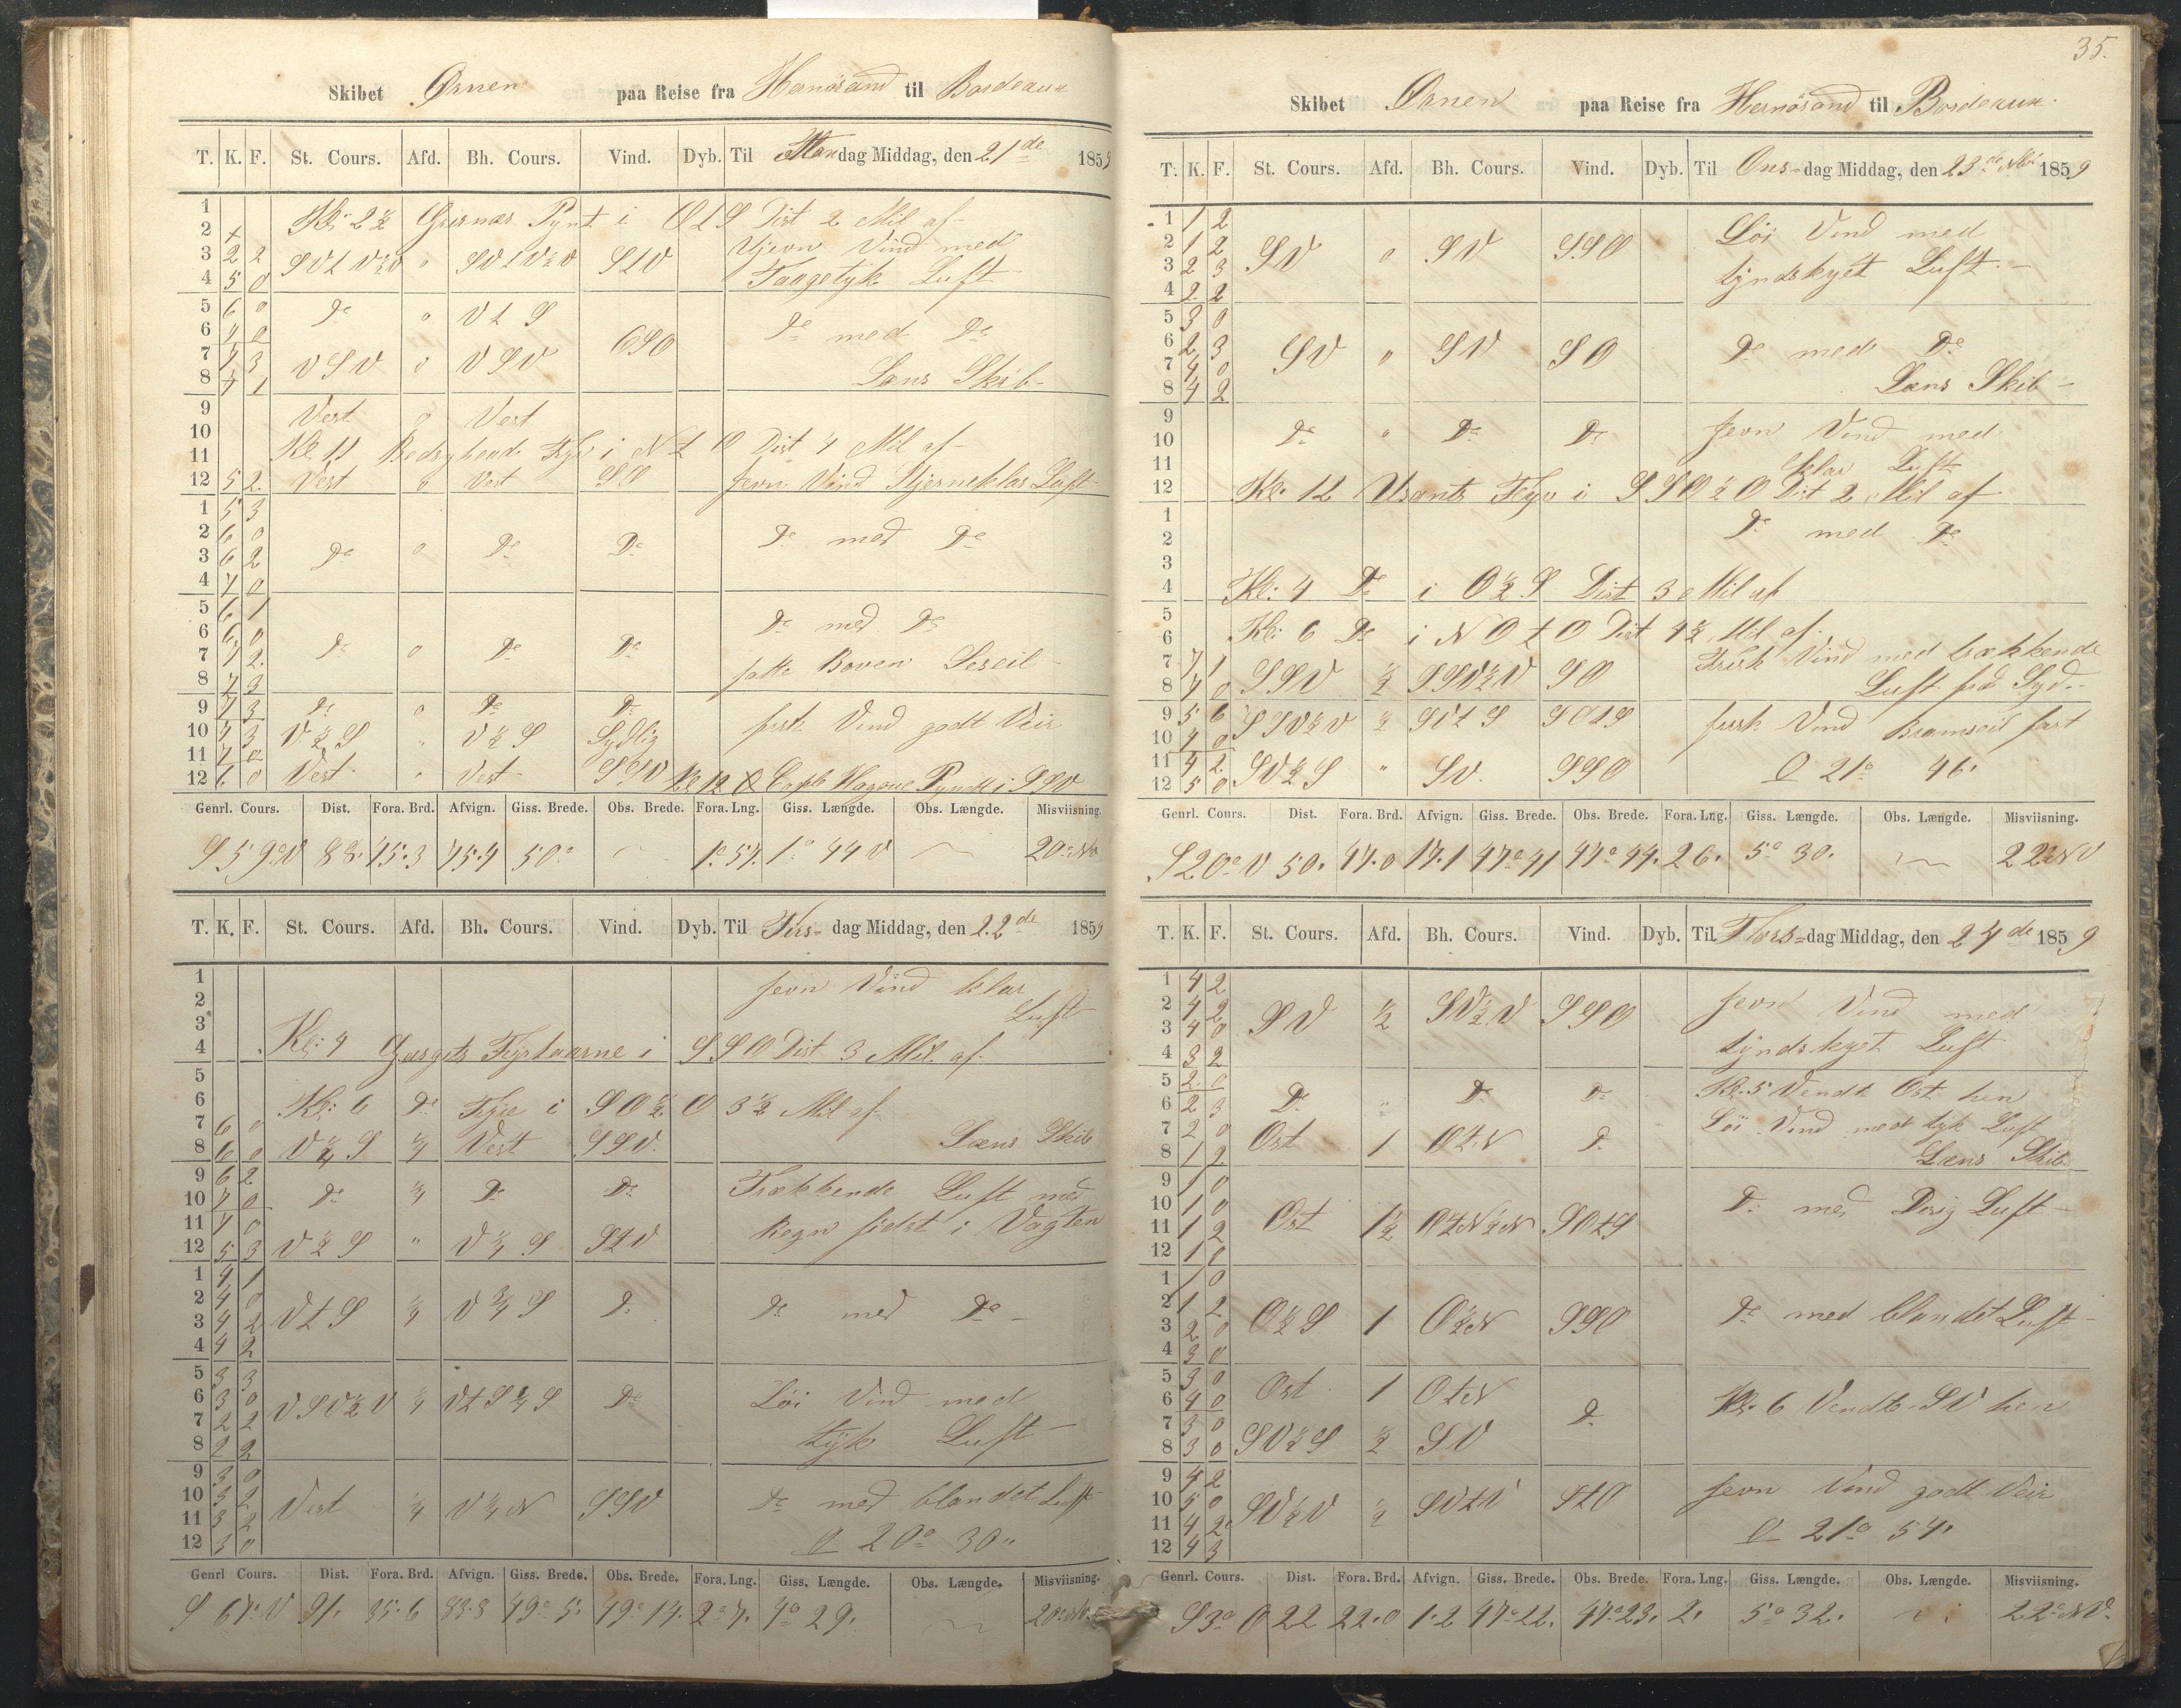 Skibet Ørnen paa Reise fra Hernösand til Bordeaux
T. K. F. St. Cours. Afd. Bh. Cours. Vind. Dyb. Til Mandag Middag, den 21de 1859
1
2 Kl: 2½ Grisnæs Pynt i OtS Dist 2 Mil af
3 2 2 SVtV½V " SVtV½V StV Ujevn Vind med
4 5 0 Taagetyk Luft
5 6 0 Do " VtS
6 7 0 OSO Do med Do
7 7 3 VSV " VSV
8 7 1 Læns Skib
9 Vest " Vest
10
11 Kl 11 Fyr i NtO Dist 4 Mil af
12 5 2 Vest " Vest SO Jevn Vind Stjerneklar Luft
1 5 3
2 6 0 Do med Do
3 6 2 Do " Do Do
4 7 0
5 6 1
6 6 0 Do med Do
7 7 2 Do " Do Do
8 7 3 satte Boven Leseil
9 7 3 Do " Do Do
10 7 3 V½S " V½S Sydlig frisk Vind godt Veir
11 7 0 Vest " Vest SSV
12 6 0 Kl 12 Cape Hagoue Pyndt i SSV
Genrl. Cours. Dist. Fora. Brd. Afvign. Giss. Brede. Obs. Brede. Fora. Lng. Giss. Længde. Obs. Længde. Misviisning.
S 59° V 88. 45.3 75.4 50° 1° 57. 1° 44 V 20° NV
T. K. F. St. Cours. Afd. Bh. Cours. Vind. Dyb. Til Tirsdag Middag, den 22de 1859
1 Jevn Vind klar
2 Luft
3
4 Kl: 4 Fyrtaarne i SSO Dist 3 Mil af
5
6 Kl: 6 Do Fyre i SO½O 3½ Mil af
7 6 0
8 6 0 V¾S ¼ Vest SSV Læns Skib
9 6 2
10 7 0 Do ¼ Do Do Trækkende Luft med
11 7 0 Regn sidst i Vagten
12 5 3 V½S " V¼S StV
1 4 1
2 4 0
3 4 2 VtS ¼ V¾S Do Do med Do
4 4 2
5 3 3
6 3 0 VSV½V ¼ VtS¼S Do Löi Vind med
7 2 2 tyk Luft
8 2 2
9 3 0
10 3 2 Vest ¼ V¼N SSV Do med blandet Luft
11 3 2
12 3 0 20° 30"
Genrl Cours. Dist. Fora. Brd. Afvign. Giss. Brede. Obs. Brede. Fora. Lng. Giss. Længde. Obs. Længde. Misviisning.
S 67° V 91. 35.6 83.8 49° 5. 49° 14. 2° 7. 4° 29. 20° NV
35.
Skibet Ørnen paa Reise fra Hernösand til Bordeaux
T. K. F. St. Cours. Afd. Bh. Cours. Vind. Dyb. Til Onsdag Middag, den 23de 1859
1 1 2 Löi Vind med
2 1 2 SV " SV SSO
3 2 3 tyndskyet Luft
4 2 2
5 3 0
6 2 3 SV " SV SO Do med Do
7 4 0
8 4 2 Læns Skib
9 Jevn Vind med
10 Do " Do Do
11 klar Luft
12 Kl: 12 Usants Fyr i SSO½O Dist 2 Mil af
1 Do med Do
2
3
4 Kl: 4 Do i O½S Dist 3 Mil af
5
6 Kl: 6 Do i NOtO Dist 4½ Mil af
7 7 1 Frisk Vind med trækkende
8 7 0 SSV ½ SSV½V SO Luft fra Syd
9 5 6 SSV½V ½ SVtS SOtS frisk Vind Bramseil fast
10 4 0
11 4 2 SV½S " SV SSO 21° 46'
12 5 0
Genrl. Cours. Dist. Fora. Brd. Afvign. Giss. Brede. Obs. Brede. Fora. Lng. Giss. Længde. Obs. Længde. Misviisning.
S 20° V 50. 47.0 17.1 47° 41 47° 44. 26. 5° 30. 22° NV
T. K. F. St. Cours. Afd. Bh. Cours. Vind. Dyb. Til Thorsdag Middag, den 24de 1859
1 4 2
2 4 2 SV ½ SV½V SSO Jevn Vind med
3 4 0
4 3 2 tyndskyet Luft
5 2 0 Kl: 5 Vendt Ost hen
6 2 3 Do " Do Do
7 2 0 Ost 1 OtN Do Löi Vind med tyk Luft
8 1 2 Læns Skib
9 1 0
10 1 0 Do med Disig Luft
11 1 2 Ost 1½ OtN½N SOtS
12 1 0
1 1 0
2 1 2 O½S 1 O½N SSO Do med blandet Luft
3 2 0
4 3 0
5 3 0 Ost 1 OtN
6 4 0 Do Kl: 6 Vendte SV hen
7 3 0 SV½S ½ SV
8 3 0
9 4 2 Jevn Vind godt Veir
10 5 0 SV½V ½ SVtV StO
11 4 2 21° 54'
12 4 3
Genrl. Cours. Dist. Fora. Brd. Afvign. Giss. Brede. Obs. Brede. Fora. Lng. Giss. Længde. Obs. Længde. Misviisning.
S 3° O 22 22.0 1.2 47° 22. 47° 23. 2. 5° 32. 22° NV